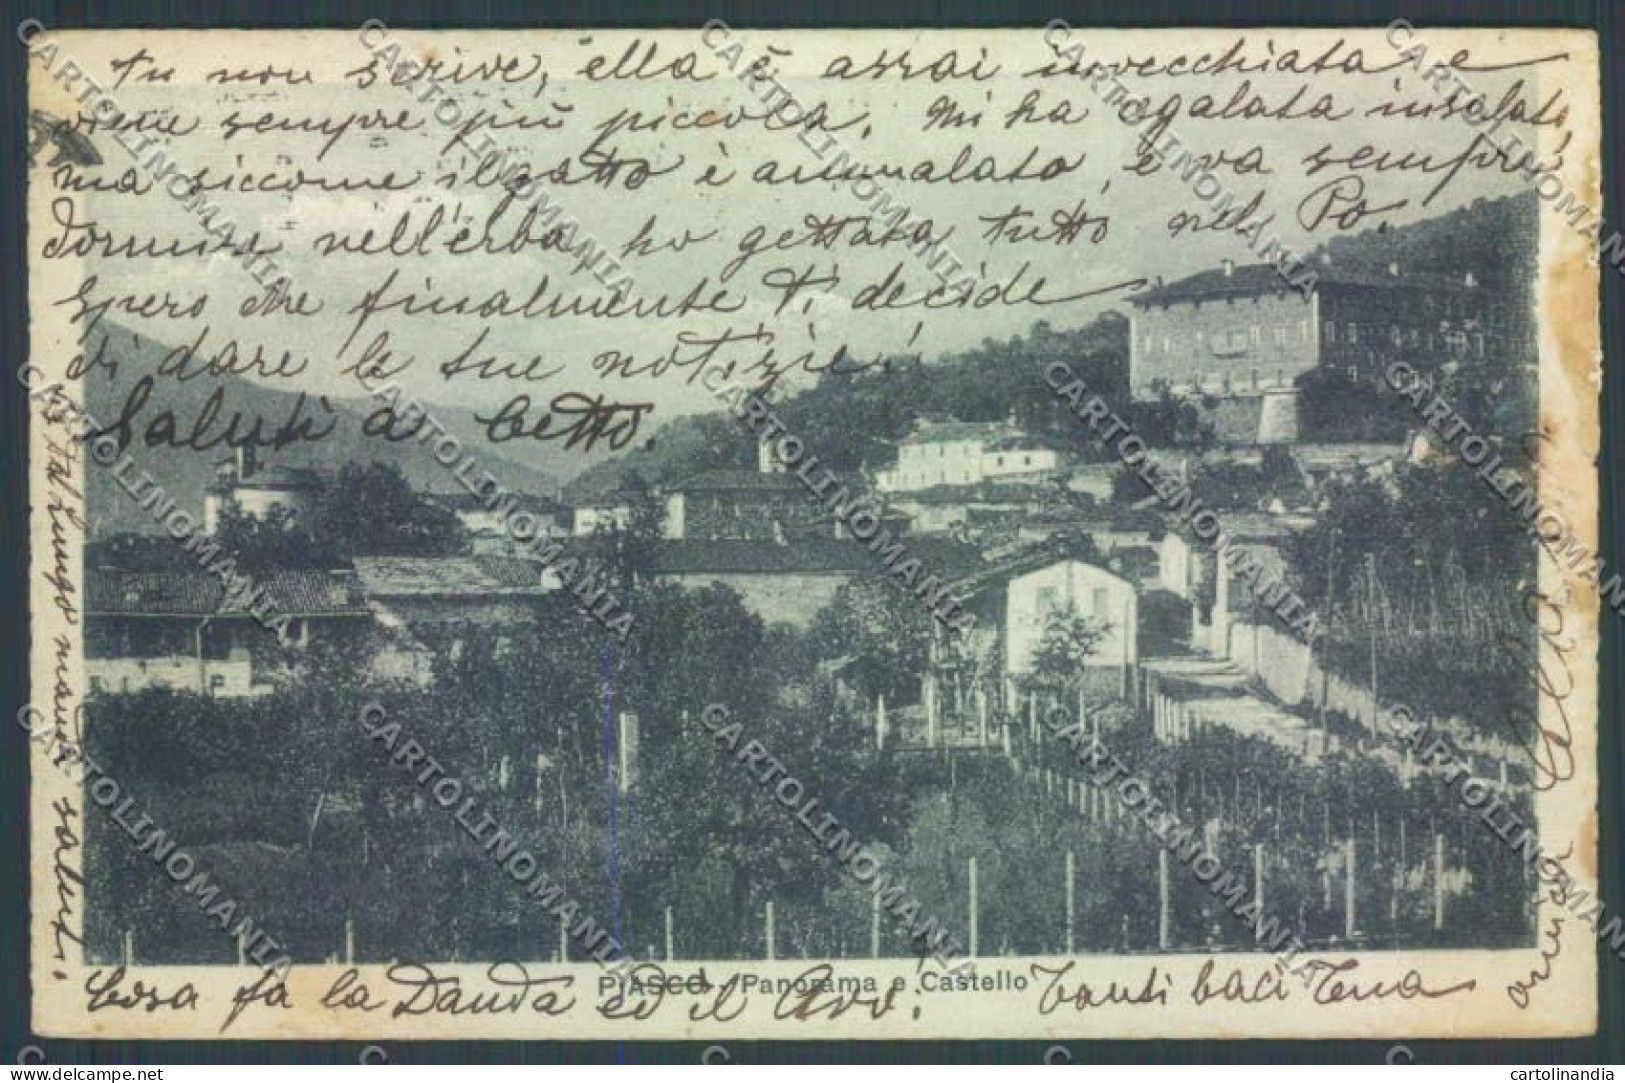 tu non scrive, ella è assai invecchiata e
viene sempre più piccola. Mi ha regalata insalata,
ma siccome il gatto è ammalato, e va sempre
dormire nell'erba, ho gettata tutto nel Po.
Spero che finalmente ti decide
di dare le tue notizie!
Saluti a Cetto.
dal lungo mandi saluti.
PIASCO - Panorama e Castello
Cosa fa la Danda ed il Avo!
Tanti baci Tua
CARTOLINOMANIA
cartolinandia